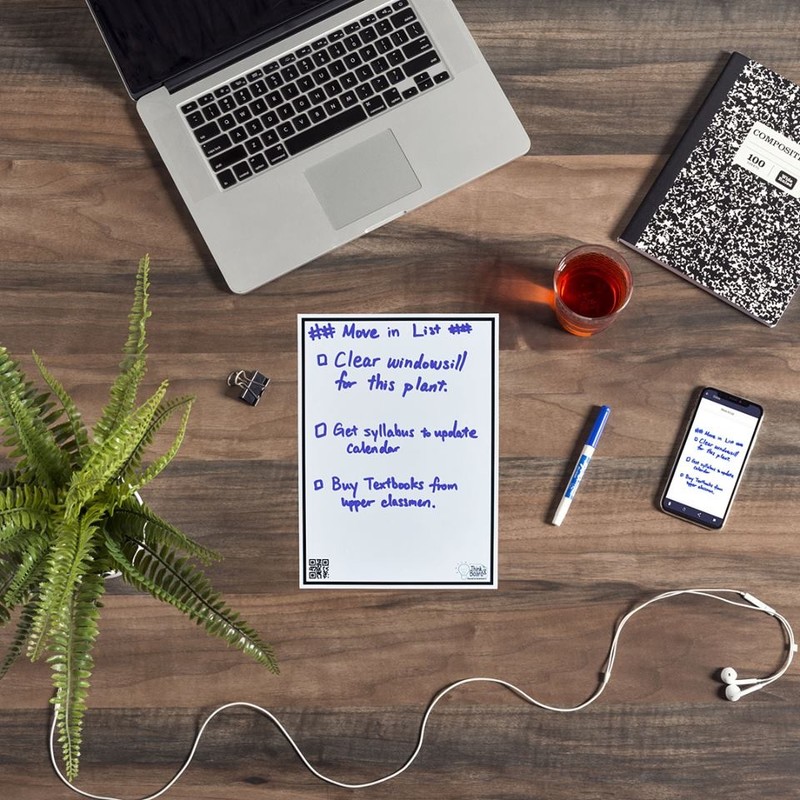 COMPOSIT
100
## Move in List ##
Clear windowsill
for this plant.
Get syllabus to update
calendar
Buy Textbooks from
upper classmen.
Think
Board
## Move in List ##
Clear windowsill
for this plant.
Get syllabus to update
calendar
Buy Textbooks from
upper classmen.